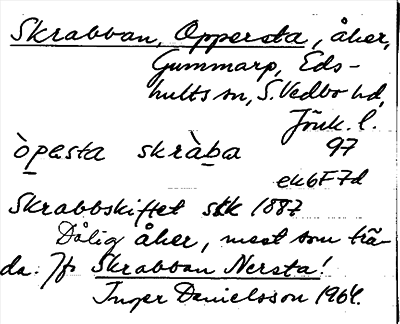 Skrabban, Oppersta, åker,
Gummarp, Eds-
hults sn, S. Vedbo hd,
Jönk. l.
òpesta skràba 97
ek6F7d
Skrabbskiftet stk 1887
Dålig åker, mest som trä-
da. Jfr Skrabban Nersta!
Inger Danielsson 1964.